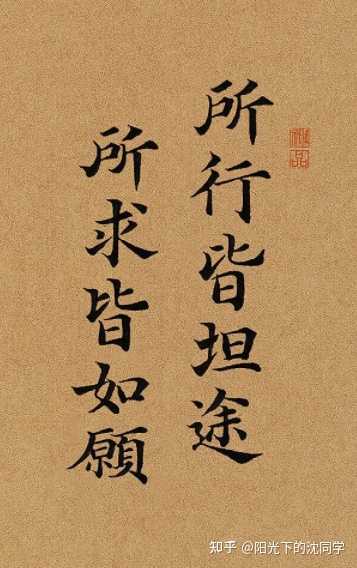 所行皆坦途
所求皆如願
雅品
知乎 @阳光下的沈同学